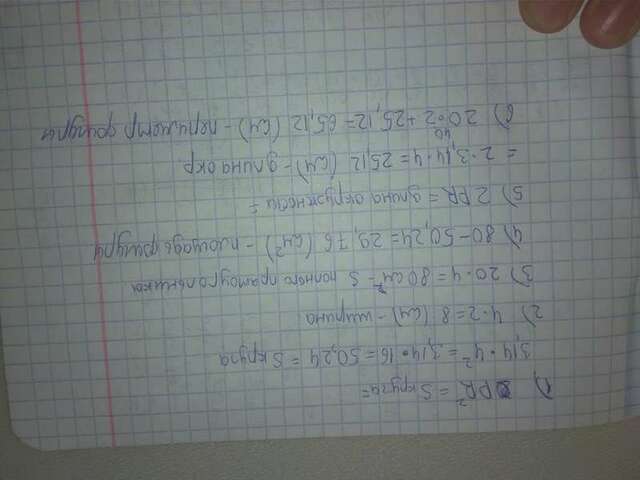 1) PR² = S круга =
3,14 · 4² = 3,14 · 16 = 50,24 = S круга
2) 4 · 2 = 8 (см) - ширина
3) 20 · 4 = 80 см² - S полного прямоугольника
4) 80 - 50,24 = 29,76 (см²) - площадь фигуры
5) 2PR = длина окружности =
= 2 · 3,14 · 4 = 25,12 (см) - длина окр.
6) 20 · 2 + 25,12 = 65,12 (см) - периметр фигуры
40